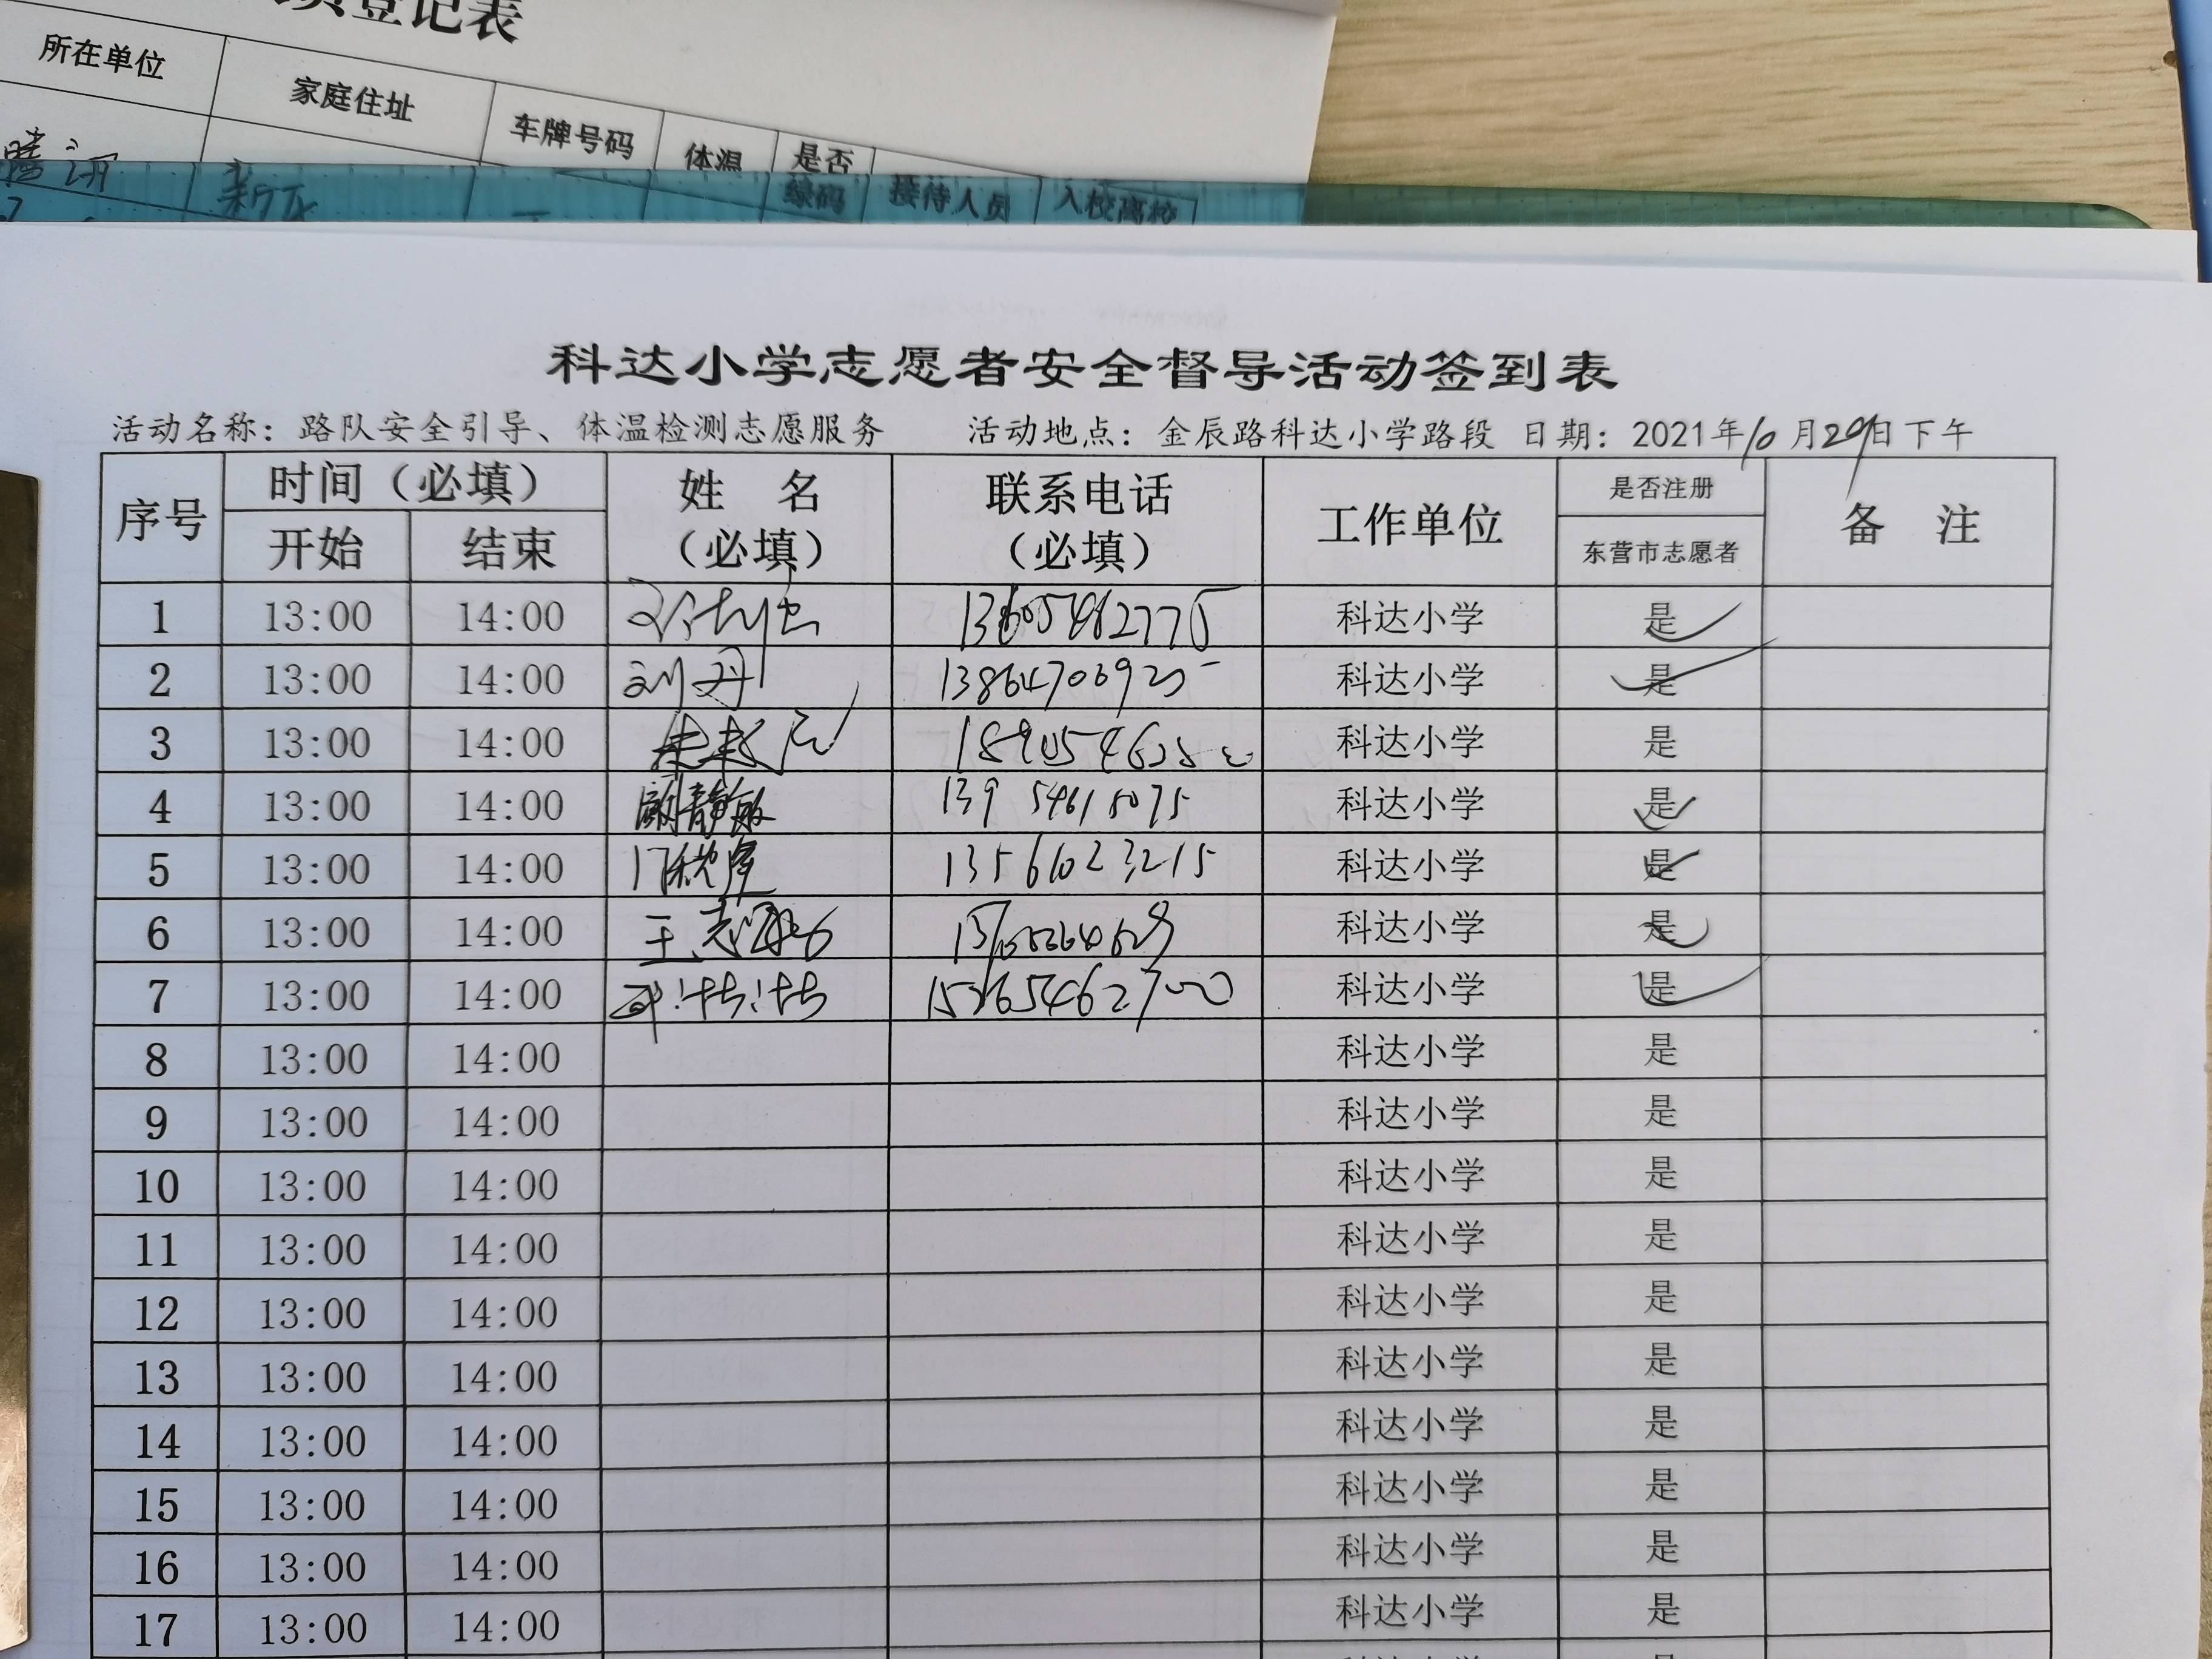 登记表
所在单位 家庭住址 车牌号码 体温 是否
绿码 接待人员 入校离校
科达小学志愿者安全督导活动签到表
活动名称：路队安全引导、体温检测志愿服务 活动地点：金辰路科达小学路段 日期：2021年10月29日下午
序号 时间（必填） 姓 名 联系电话 工作单位 是否注册 备 注
开始 结束 （必填） （必填） 东营市志愿者
1 13:00 14:00 13605462775 科达小学 是
2 13:00 14:00 刘丹 科达小学 是
3 13:00 14:00 科达小学 是
4 13:00 14:00 顾静敏 13954615075 科达小学 是
5 13:00 14:00 13561023215 科达小学 是
6 13:00 14:00 科达小学 是
7 13:00 14:00 科达小学 是
8 13:00 14:00 科达小学 是
9 13:00 14:00 科达小学 是
10 13:00 14:00 科达小学 是
11 13:00 14:00 科达小学 是
12 13:00 14:00 科达小学 是
13 13:00 14:00 科达小学 是
14 13:00 14:00 科达小学 是
15 13:00 14:00 科达小学 是
16 13:00 14:00 科达小学 是
17 13:00 14:00 科达小学 是